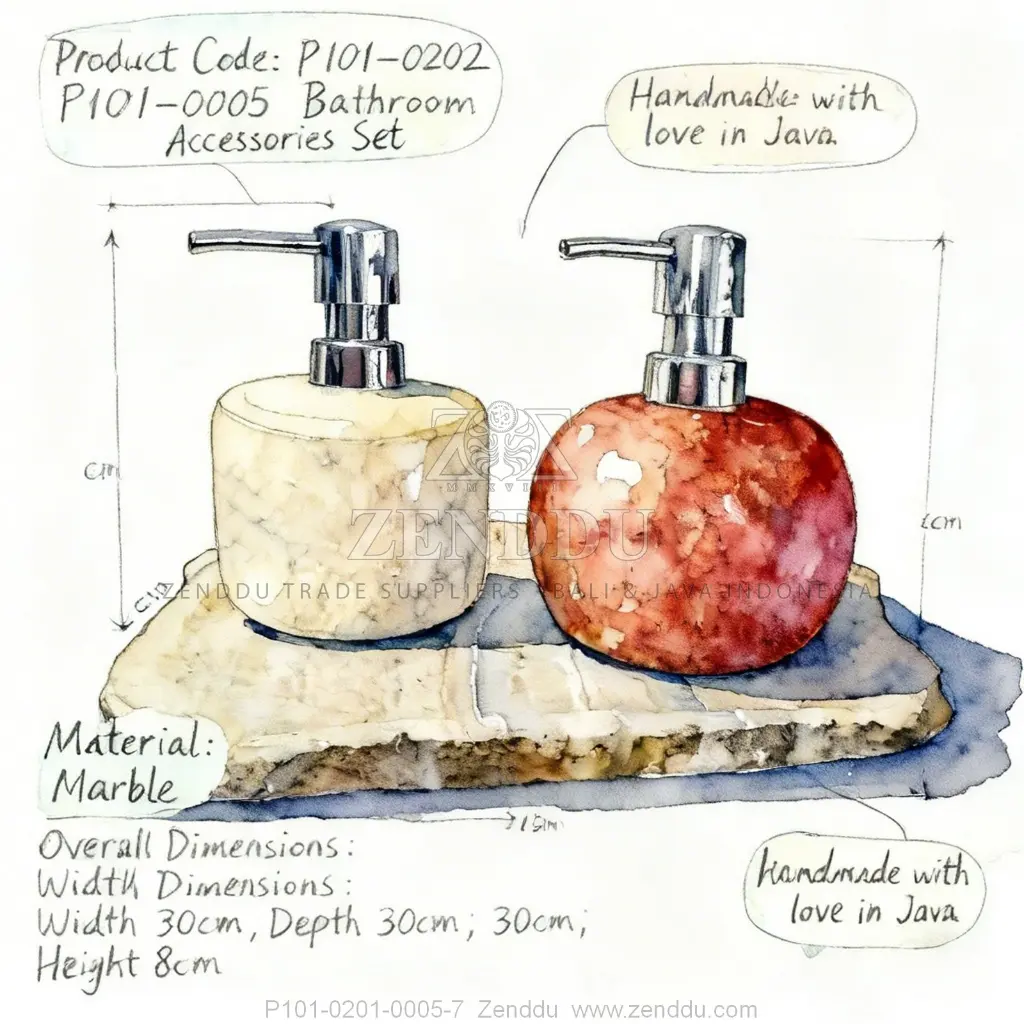 Product Code: P101-0202
P101-0005 Bathroom
Accessories Set
Handmade with
love in Java
cm
cm
ZENDDU
ZENDDU TRADE SUPPLIERS BALI & JAVA INDONESIA
Material:
Marble
Overall Dimensions:
Width Dimensions:
Width 30cm, Depth 30cm; 30cm;
Height 8cm
Handmade with
love in Java
P101-0201-0005-7 Zenddu www.zenddu.com